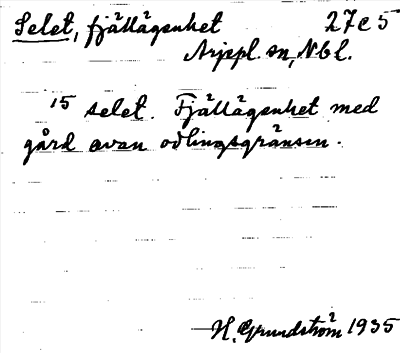 Selet, fjällägenhet 27e5
Arjepl. sn, Nbl.
15 selet. Fjällägenhet med
gård ovan odlingsgränsen.
H. Grundström 1935